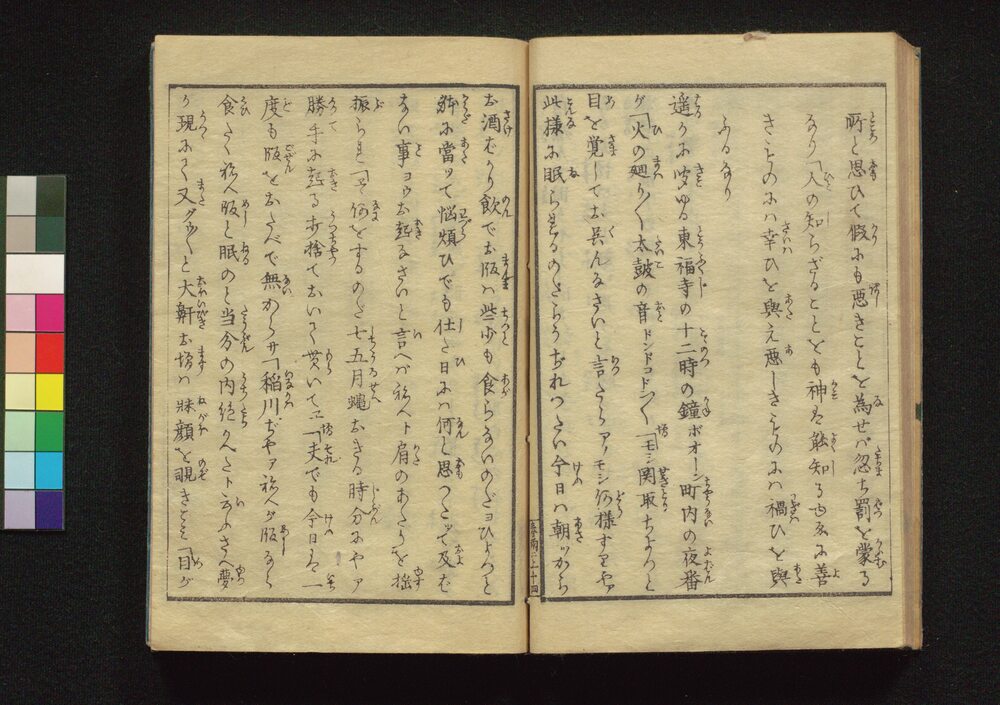 所と思ひて假にも悪きことを為せバ忽ち罰を蒙る
なり「人の知らざることとも神は能知る由ゑに善
きことのにハ幸ひを與え悪しきことのにハ禍ひを與
ふるなり
遥かに聞ゆる東福寺の十二時の鐘ボオーン町内の夜番
が「火の廻り〱太鼓の音ドンドコドン〱「モシ関取ちよつと
目を覚して お呉んなさいと言たらアヽモシ何様すをやア
此様に眠られるのだらうぢれつたい今日ハ朝ツから
お酒ばかり飲でお飯ハ些少も食らないのだヨひよつと
躰に當ッて悩煩ひでも仕た日にハ何と思つたッて及ば
ない事ヨウお起なさいと言へバ稲川ト肩のあたりを揺
振られ「エヽ何をするのだ七五月蠅おきる時分にやア
勝手に起る お捨ておいて貰いてエ「夫でも今日を一
度も飯をおたべで無から サ「稲川ぢやア ねへか飯なら
食たく ねへ 眠のと当分の内 ト云ふさへ夢
か現にて又グウ〱と大鼾 お 坊ハ 寐顔を覗きこミ「目が
春雨二ノ上十四